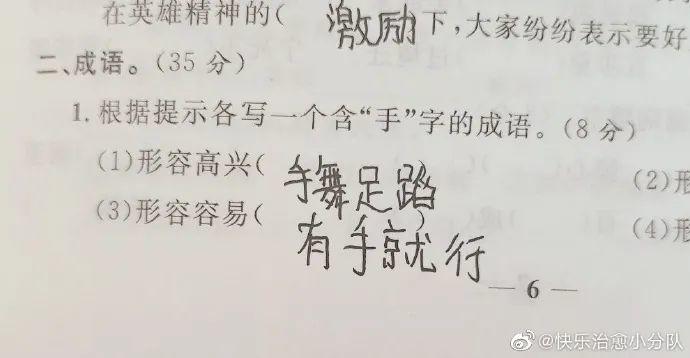 在英雄精神的( 激励下,大家纷纷表示要好
二、成语。(35 分)
1. 根据提示各写一个含“手”字的成语。(8 分)
(1)形容高兴( 手舞足蹈 ) (2)形
(3)形容容易( 有手就行 ) (4)形
— 6 —
@快乐治愈小分队